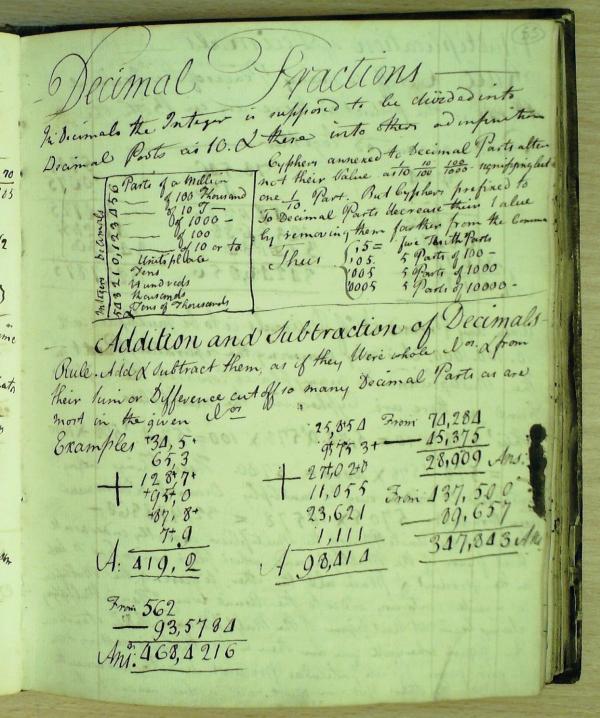 (33)
Decimal Fractions
In Decimals the Integer is supposed to be divided into
Decimal Parts as 10. & these into others ad infinitum
Integers Decimals
6 Parts of a Million
5 of 100 Thousand
4 of 10 T
3 of 1000
2 of 100
1 of 10 or to
0 Units place
1 Tens
2 Hundreds
3 Thousands
4 Tens of Thousands
5
Cyphers annexed to Decimal Parts alter
not their Value as 10/10 100/1000 signifying but
one 1/10 Part. But Cyphers prefixed to
Decimal Parts decrease their Value
by removing them farther from the Comma
Thus
,5 = five Tenth Parts
,05. 5 Parts of 100
,005 5 Parts of 1000
,0005 5 Parts of 10000
Addition and Subtraction of Decimals
Rule. Add & Subtract them, as if they Were whole Nos. & from
their Sum or Difference cut off so many Decimal Parts as are
most in the given Nos
Examples 34,5
65,3
128,7
95,0
87,8
7,9
A: 419,2
25,854
9,753
27,020
11,055
23,621
1,111
A 98,414
From 74,284
45,375
28,909 Ans.
From 437,500
89,657
347,843 Ans
From 562
93,5784
Ans: 468,4216